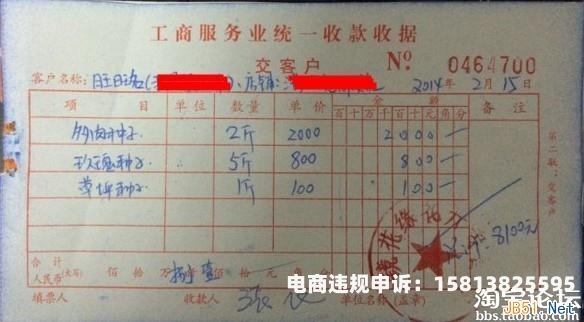 工商服务业统一收款收据
交客户 № 0464700
客户名称: 旺旺名( ),店铺: 2014年2月15日
项目 单位 数量 单价 金额 备注
百十万千百十元角分
多肉种子 2斤 2000 2000—
玫瑰种子 5斤 800 800—
草坪种子 1斤 100 100—
8100元
第二联:交客户
合计
人民币(大写) 佰 拾 万 捌仟 壹佰 拾 元 角
填票人 收款人 单位名称(盖章)
电商违规申诉:15813825595
淘宝论坛
bbs.taobao.com
jb51.Net